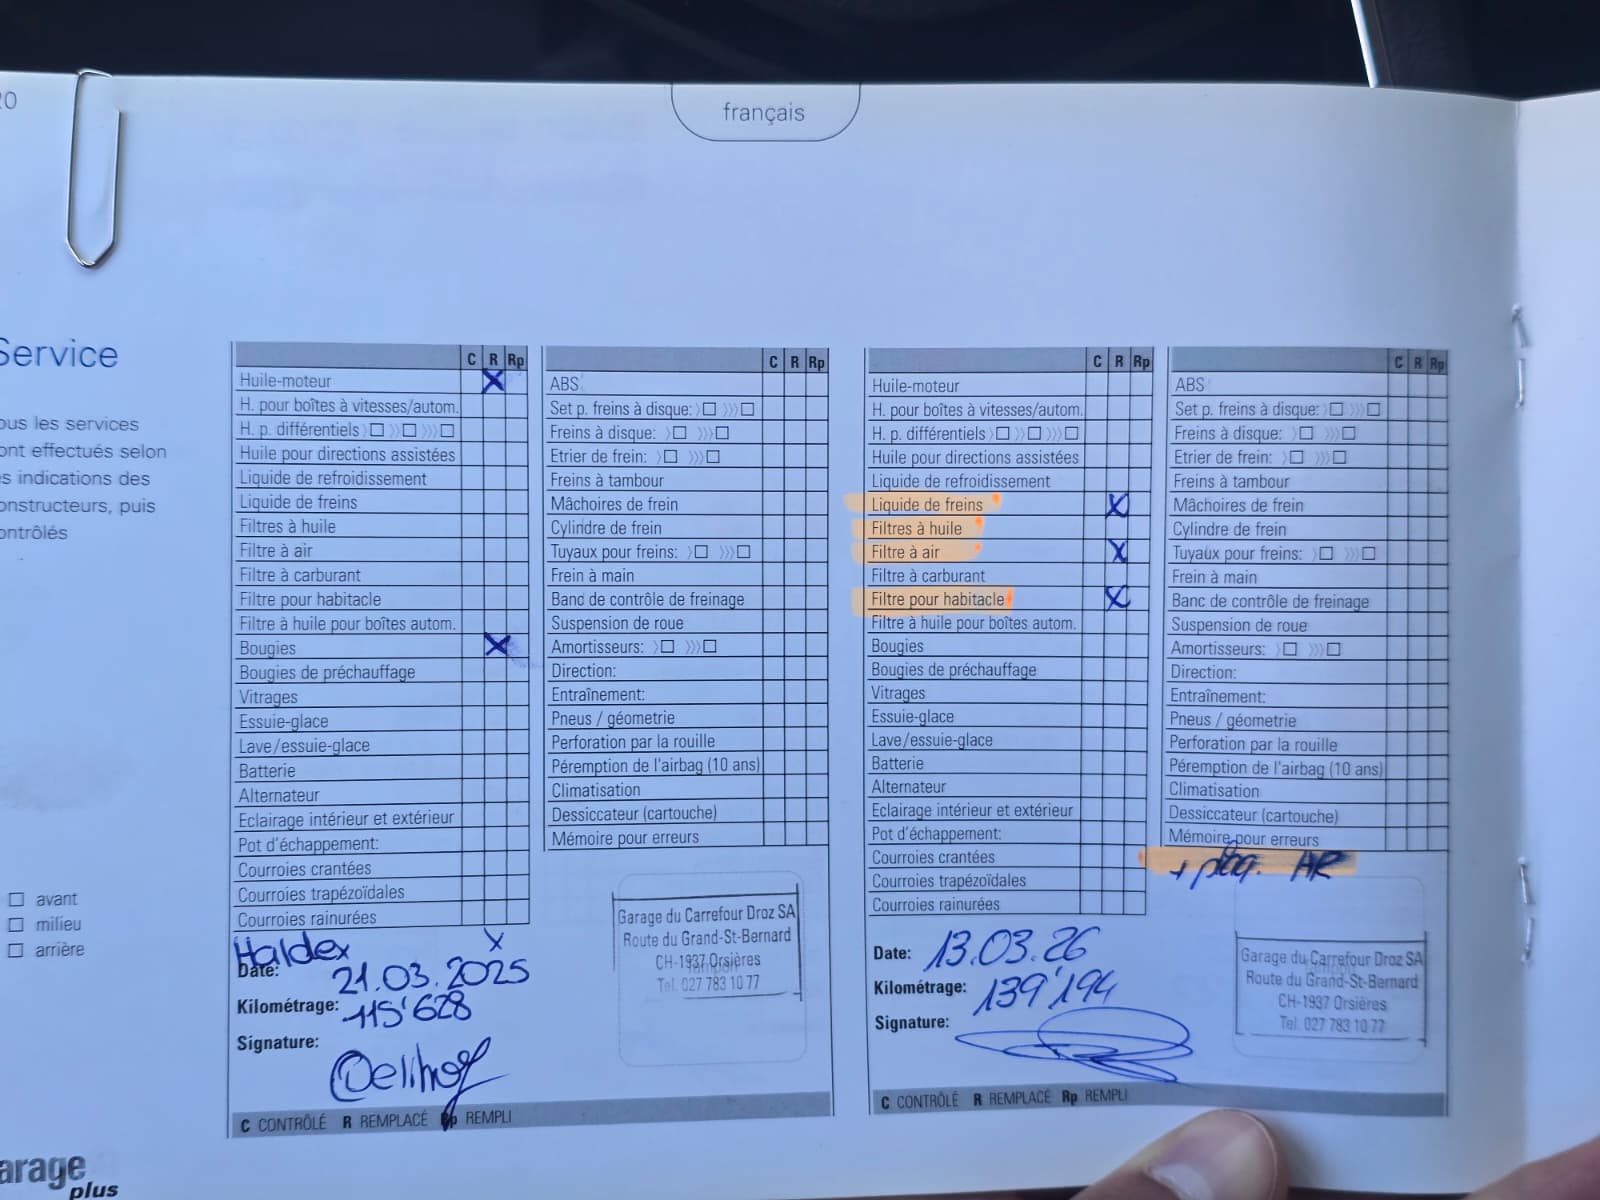 20
français
Service
ous les services
ont effectués selon
es indications des
onstructeurs, puis
ontrôlés
avant
milieu
arrière
arage
plus
C R Rp
Huile-moteur X
H. pour boîtes à vitesses/autom.
H. p. différentiels 〉☐ 〉〉☐ 〉〉〉☐
Huile pour directions assistées
Liquide de refroidissement
Liquide de freins
Filtres à huile
Filtre à air
Filtre à carburant
Filtre pour habitacle
Filtre à huile pour boîtes autom.
Bougies X
Bougies de préchauffage
Vitrages
Essuie-glace
Lave/essuie-glace
Batterie
Alternateur
Eclairage intérieur et extérieur
Pot d'échappement:
Courroies crantées
Courroies trapézoïdales
Courroies rainurées
Haldex x
Date: 21.03.2025
Kilométrage: 115'628
Signature:
C CONTRÔLÉ R REMPLACÉ Rp REMPLI
C R Rp
ABS
Set p. freins à disque: 〉☐ 〉〉〉☐
Freins à disque: 〉☐ 〉〉〉☐
Etrier de frein: 〉☐ 〉〉〉☐
Freins à tambour
Mâchoires de frein
Cylindre de frein
Tuyaux pour freins: 〉☐ 〉〉〉☐
Frein à main
Banc de contrôle de freinage
Suspension de roue
Amortisseurs: 〉☐ 〉〉〉☐
Direction:
Entraînement:
Pneus / géometrie
Perforation par la rouille
Péremption de l'airbag (10 ans)
Climatisation
Dessiccateur (cartouche)
Mémoire pour erreurs
Garage du Carrefour Droz SA
Route du Grand-St-Bernard
CH-1937 Orsières
Tel. 027 783 10 77
C R Rp
Huile-moteur
H. pour boîtes à vitesses/autom.
H. p. différentiels 〉☐ 〉〉☐ 〉〉〉☐
Huile pour directions assistées
Liquide de refroidissement
Liquide de freins X
Filtres à huile
Filtre à air X
Filtre à carburant
Filtre pour habitacle X
Filtre à huile pour boîtes autom.
Bougies
Bougies de préchauffage
Vitrages
Essuie-glace
Lave/essuie-glace
Batterie
Alternateur
Eclairage intérieur et extérieur
Pot d'échappement:
Courroies crantées
Courroies trapézoïdales
Courroies rainurées
Date: 13.03.26
Kilométrage: 139'194
Signature:
C CONTRÔLÉ R REMPLACÉ Rp REMPLI
C R Rp
ABS
Set p. freins à disque: 〉☐ 〉〉〉☐
Freins à disque: 〉☐ 〉〉〉☐
Etrier de frein: 〉☐ 〉〉〉☐
Freins à tambour
Mâchoires de frein
Cylindre de frein
Tuyaux pour freins: 〉☐ 〉〉〉☐
Frein à main
Banc de contrôle de freinage
Suspension de roue
Amortisseurs: 〉☐ 〉〉〉☐
Direction:
Entraînement:
Pneus / géometrie
Perforation par la rouille
Péremption de l'airbag (10 ans)
Climatisation
Dessiccateur (cartouche)
Mémoire pour erreurs
+ plaq. AR
Garage du Carrefour Droz SA
Route du Grand-St-Bernard
CH-1937 Orsières
Tel. 027 783 10 77